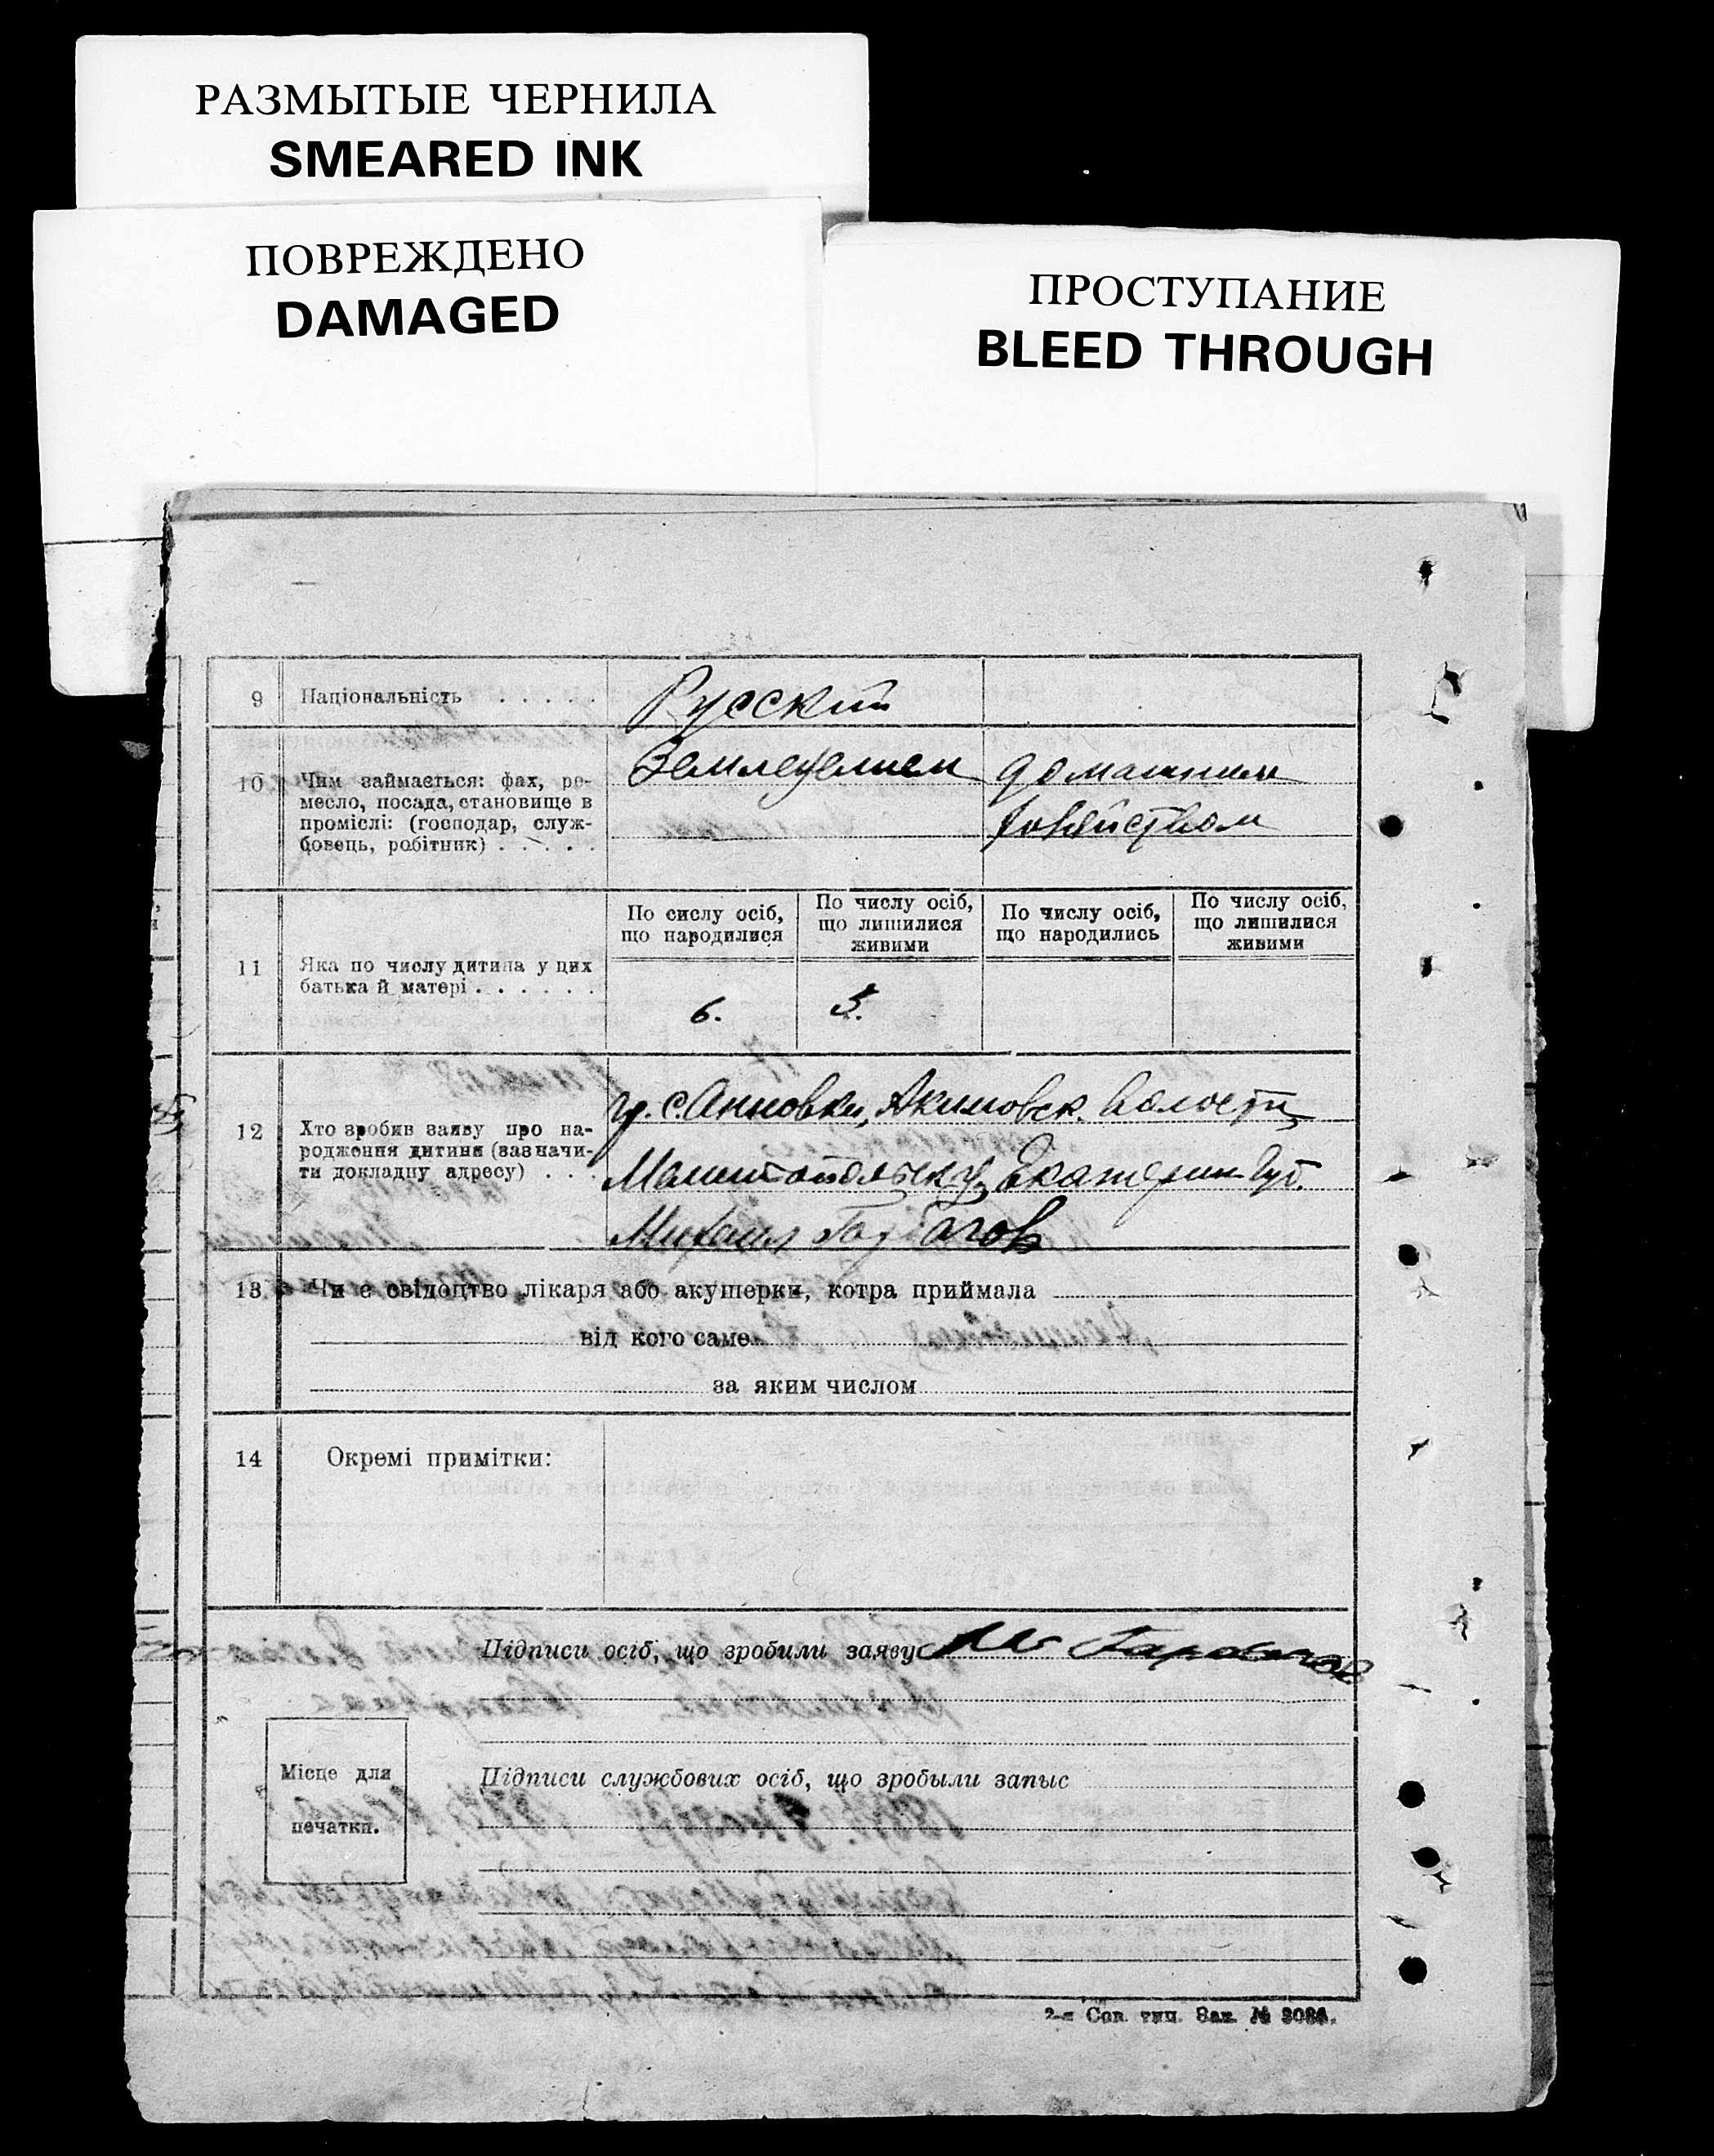 РАЗМЫТЫЕ ЧЕРНИЛА
SMEARED INK
ПОВРЕЖДЕНО
DAMAGED
ПРОСТУПАНИЕ
BLEED THROUGH
9 Національність . . . . . Русский
10 Чим займається: фах, ре-
месло, посада, становище в
проміслі: (господар, служ-
бовець, робітник) . . . . .
Земледелием
домашним
хозяйством
11 Яка по числу дитина у цих
батька й матері . . . . . .
По сислу осіб,
що народилися
По числу осіб,
що лишилися
живими
По числу осіб,
що народились
По числу осіб,
що лишилися
живими
6. 5.
12 Хто зробив заяву про на-
родження дитини (зазначи-
ти докладну адресу) . . .
гр. с. Анновки, Акимовск. волости
Мелитопольск у. Екатерин. губ.
Михаил
13 Чи є свідоцтво лікаря або акушерки, котра приймала
від кого саме
за яким числом
14 Окремі примітки:
Підписи осіб, що зробили заяву
Місце для
печатки.
Підписи службових осіб, що зробыли запыс
2-я Сов. тип. Зак. №